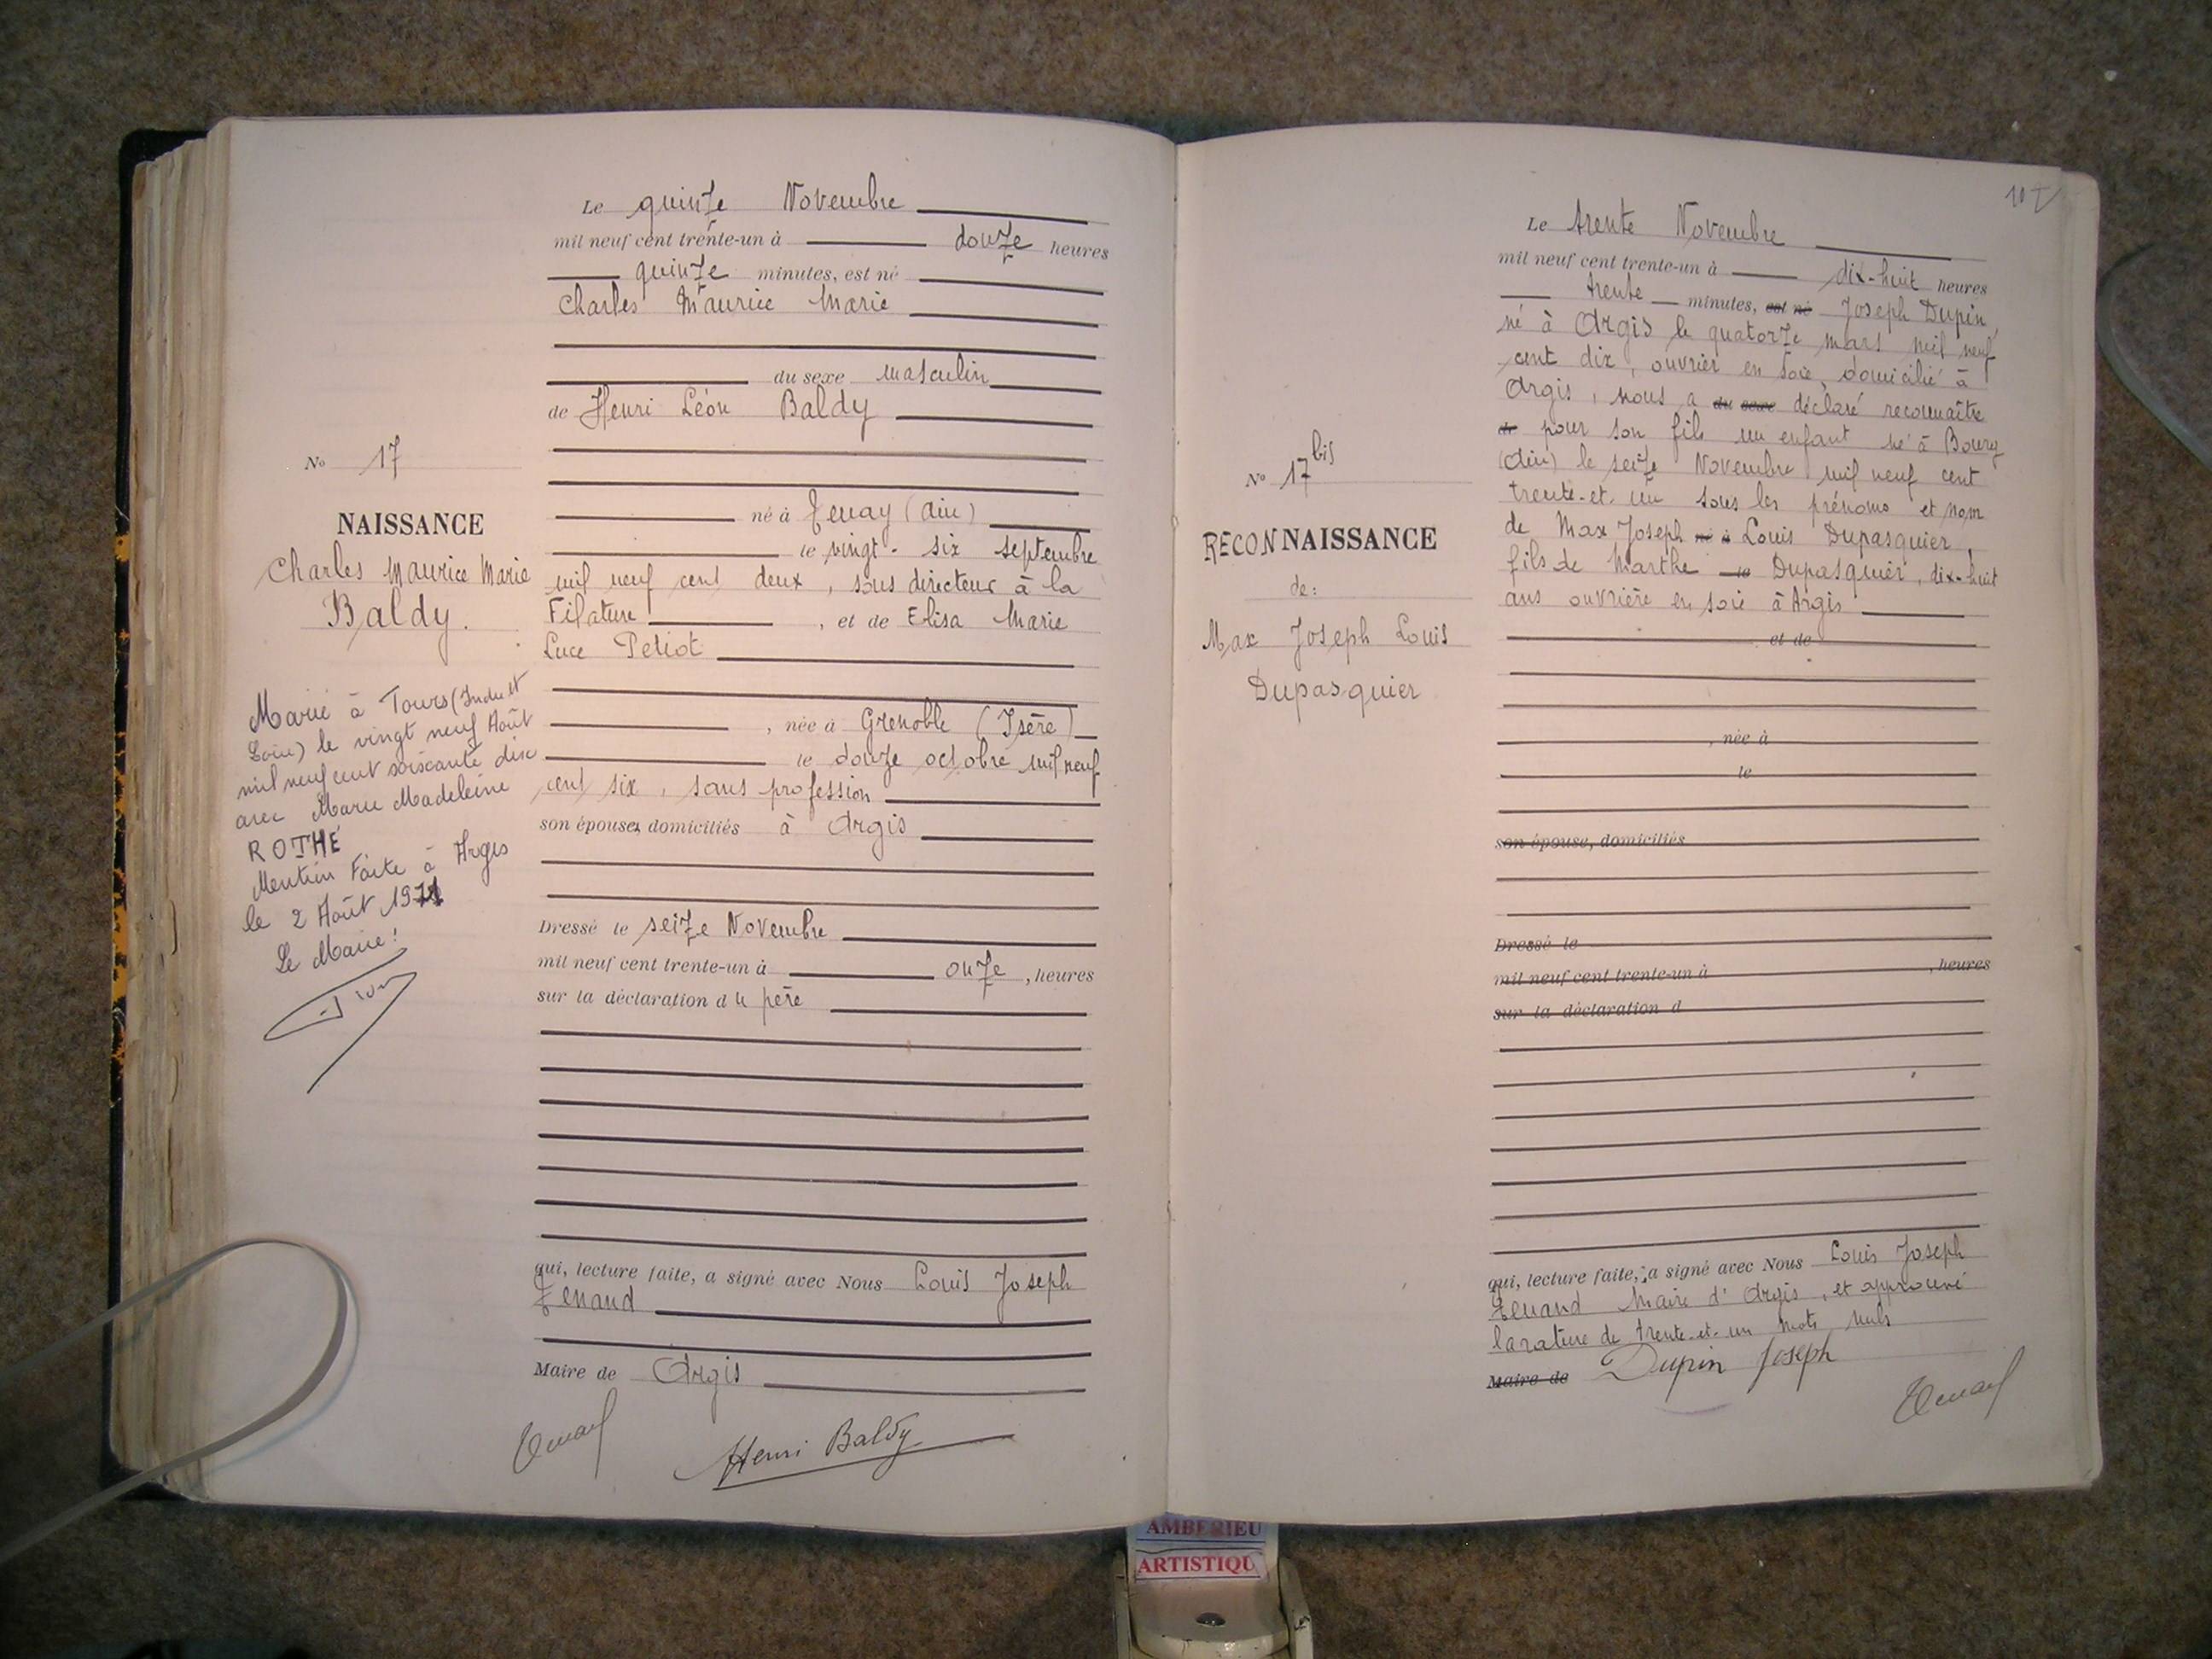 Le quinze Novembre
mil neuf cent trente-un à douze heures
quinze minutes, est né
Charles Maurice Marie
du sexe masculin
de Henri Léon Baldy
né à Tenay (Ain)
le vingt-six septembre
mil neuf cent deux, sous directeur à la
Filature, et de Elisa Marie
Luce Petiot
, née à Grenoble (Isère)
le douze octobre mil neuf
cent six, sans profession
son épouse, domiciliés à Argis
Dressé le seize Novembre
mil neuf cent trente-un à onze, heures
sur la déclaration du père
qui, lecture faite, a signé avec Nous Louis Joseph
Tenand
Maire de Argis
Henri Baldy
No 17
NAISSANCE
Charles Maurice Marie
Baldy.
Marié à Tours (Indre et
Loire) le vingt neuf Août
mil neuf cent soixante dix
avec Marie Madeleine
ROTHÉ
Mention Faite à Argis
le 2 Août 1971
Le Maire:
No 17 bis
RECONNAISSANCE
de:
Max Joseph Louis
Dupasquier
Le trente Novembre
mil neuf cent trente-un à dix-huit heures
trente minutes, est né Joseph Dupin,
né à Argis le quatorze mars mil neuf
cent dix, ouvrier en soie, domicilié à
Argis, nous a du sexe déclaré reconnaître
de pour son fils un enfant né à Bourg
(Ain) le seize Novembre mil neuf cent
trente-et-un sous les prénoms et nom
de Max Joseph né à Louis Dupasquier,
fils de Marthe le Dupasquier, dix-huit
ans ouvrière en soie à Argis
et de
, née à
le
son épouse, domiciliés
Dressé le
mil neuf cent trente-un à , heures
sur la déclaration d
qui, lecture faite, a signé avec Nous Louis Joseph
Tenand Maire d'Argis, et approuvé
la rature de trente-et-un mots nuls
Maire de
Dupin Joseph
Tenand
AMBERIEU
ARTISTIQU